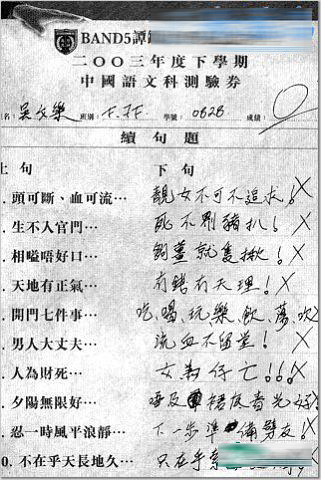 BAND5譚
二○○三年度下學期
中國語文科測驗券
名: 吳文樂 班別: F.3F 學號: 0626 成績: 0
續句題
上 句 下 句
. 頭可斷、血可流… 靚女不可不追求! X
. 生不入官門… 死不劏豬扒! X
. 相嗌唔好口… 就隻揪! X
. 天地有正氣… 有錢有天理! X
. 開門七件事… 吃、喝、玩、樂、飲、蕩、吹
. 男人大丈夫… 流血不留堂! X
. 人為財死… 女為仔亡!!! X
. 夕陽無限好… 唔及 裙底春光好 X
. 忍一時風平浪靜… 下一步準備劈友! X
0. 不在乎天長地久… 只在乎 X